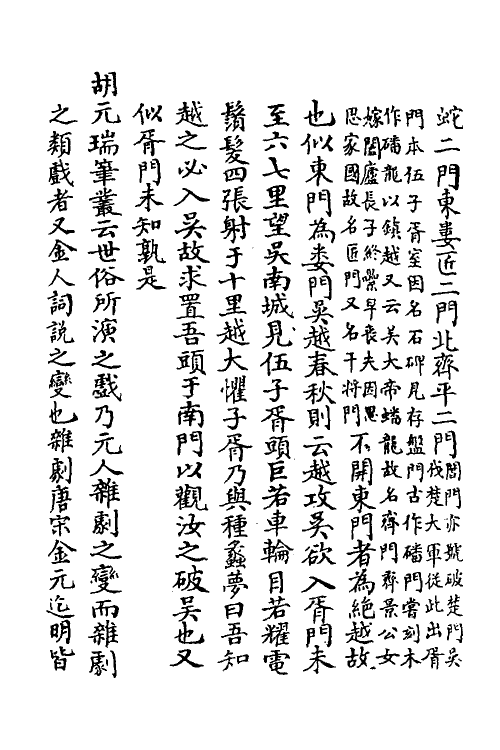 蛇二門東婁匠二門北齊平二門閶門亦號破楚門吳
伐楚大軍從此出胥
門本伍子胥室因名石碑見存盤門古作磻門嘗刻木
作磻龍以鎮越又云吳大帝蟠龍故名齊門齊景公女
嫁闔廬長子終纍早喪夫因思
思家國故名匠門又名干將門不開東門者為絕越故
也似東門為婁門吳越春秋則云越攻吳欲入胥門未
至六七里望吳南城見伍子胥頭巨若車輪目若耀電
鬚髮四張射于十里越大懼子胥乃與種蠡夢曰吾知
越之必入吳故求置吾頭于南門以觀汝之破吳也又
似胥門未知孰是
胡元瑞筆叢云世俗所演之戲乃元人雜劇之變而雜劇
之類戲者又金人詞說之變也雜劇唐宋金元迄明皆